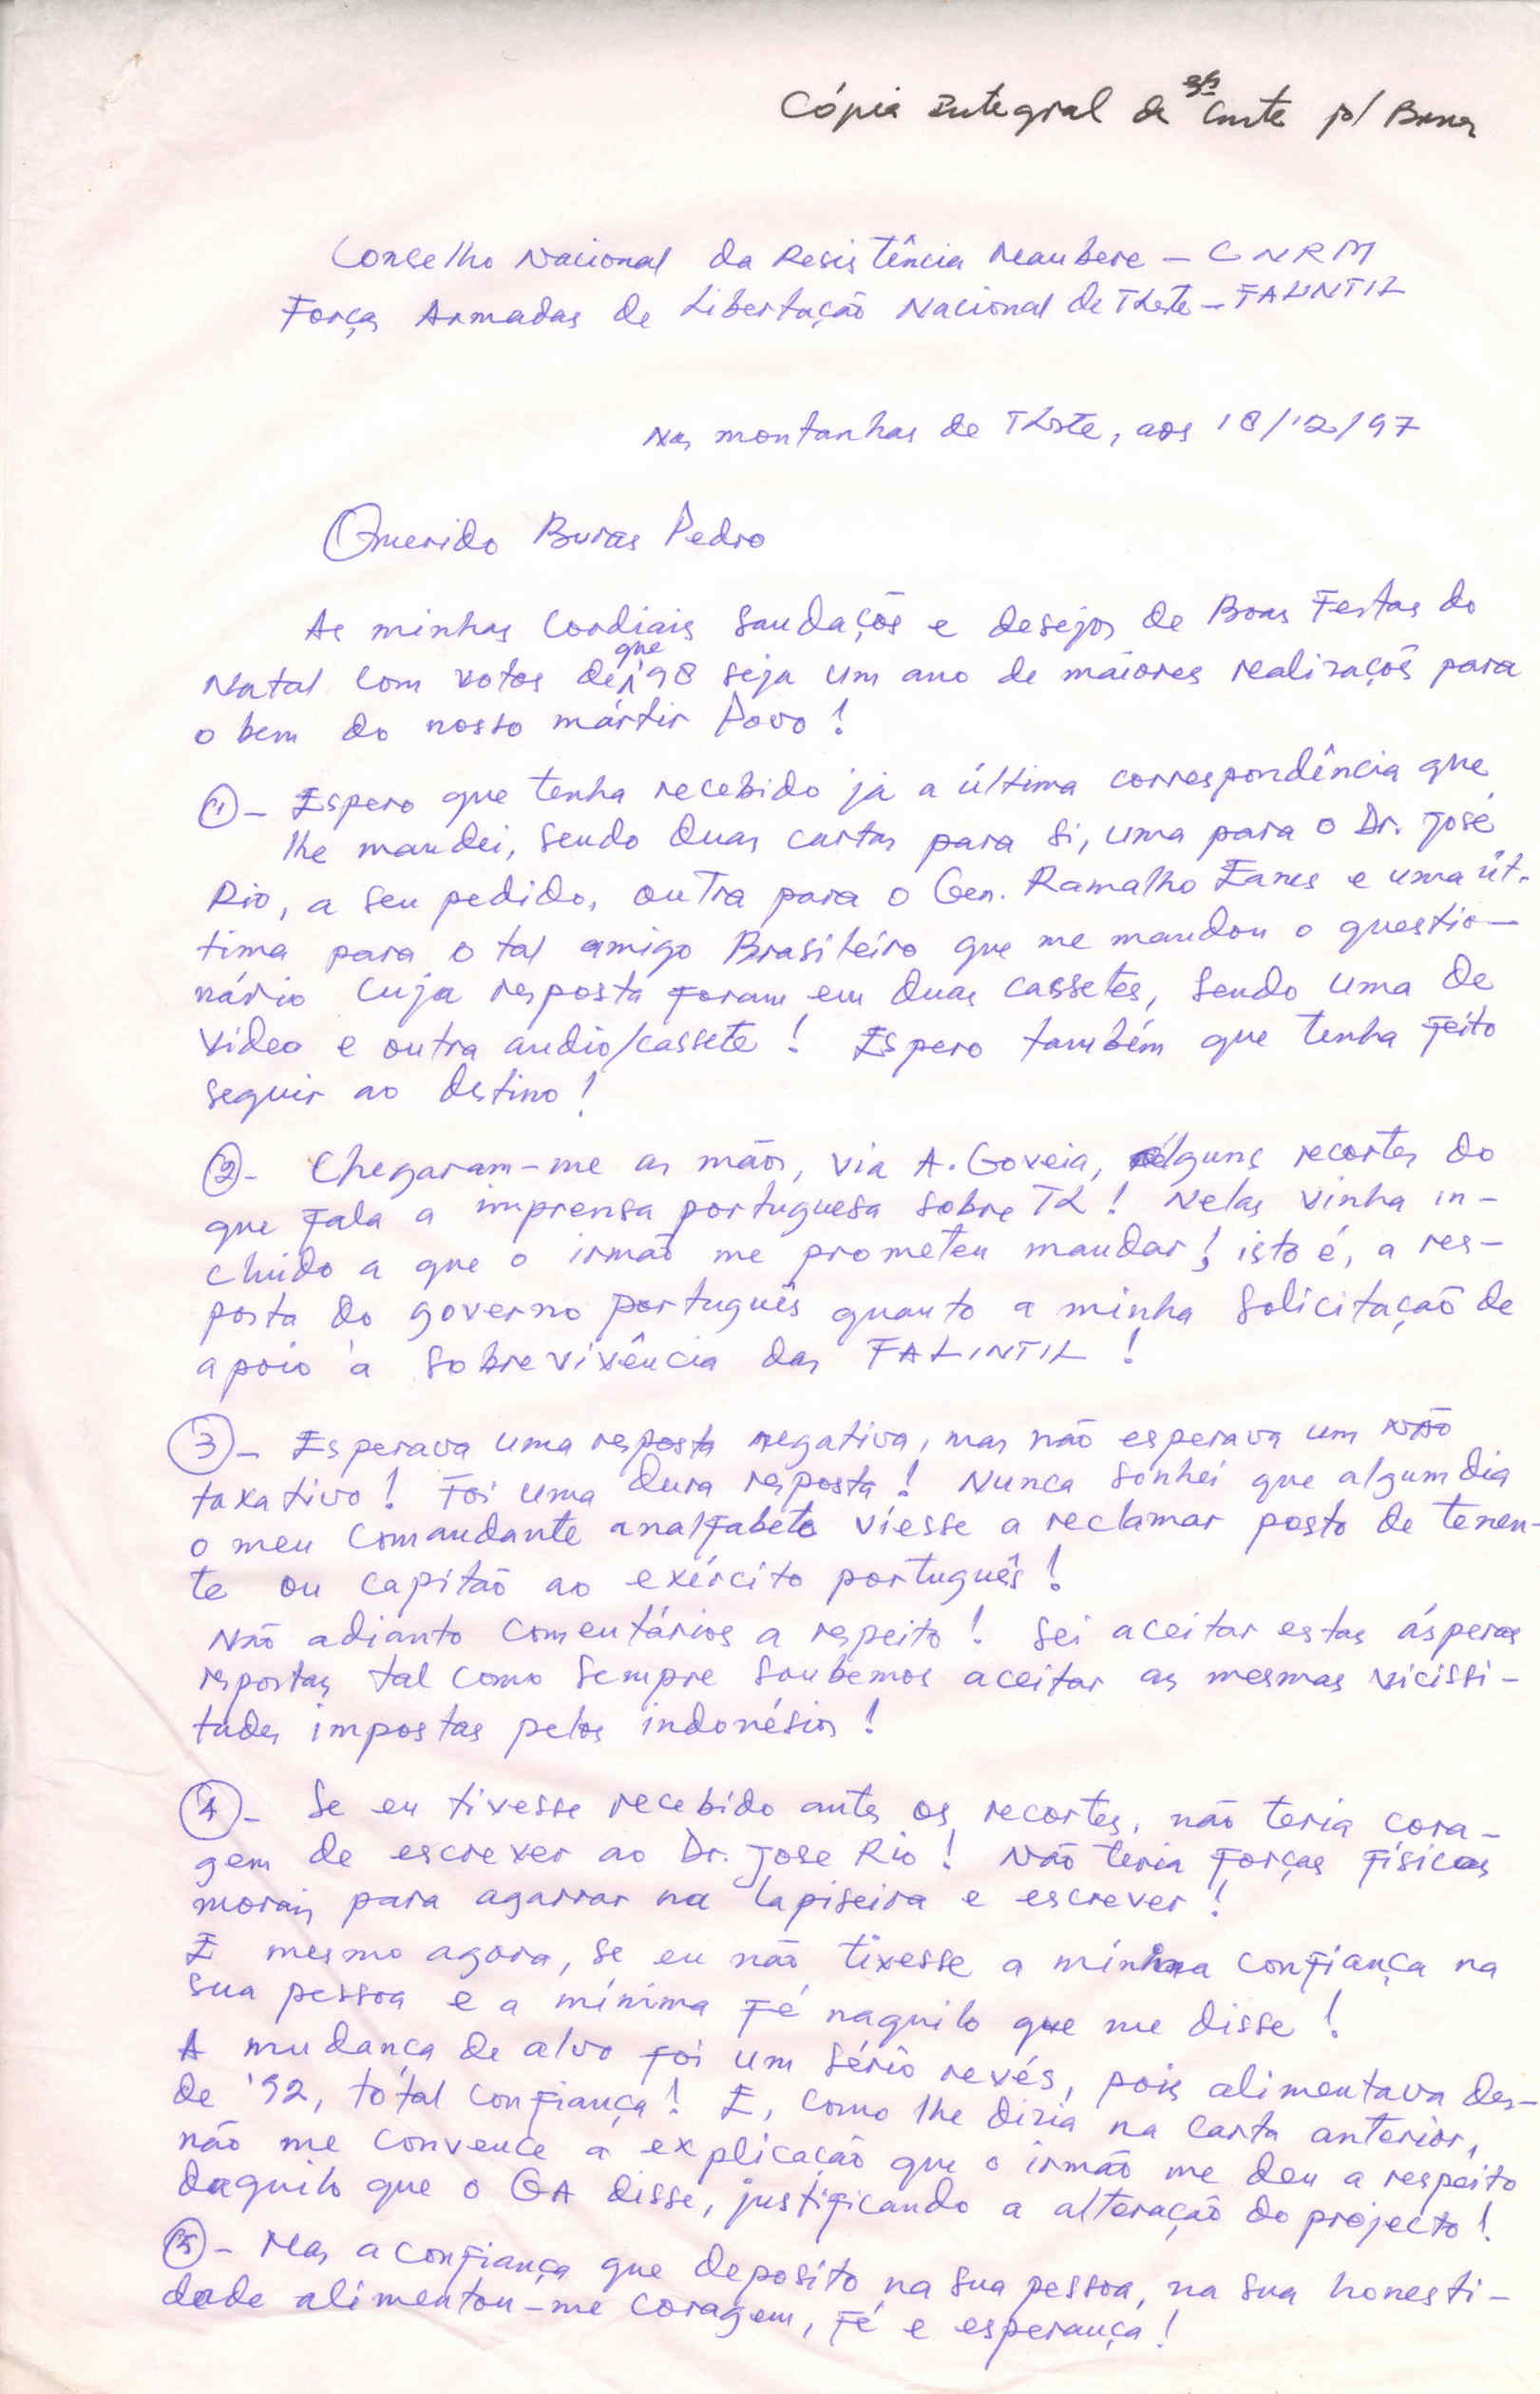 Cópia Integral da carta p/
Conselho Nacional da Resistência Maubere - CNRM
Forças Armadas de Libertação Nacional de TLeste - FALINTIL
Nas montanhas de TLeste, aos 18/12/97
Querido Buras Pedro
As minhas Cordiais Saudações e desejos de Boas Festas do
Natal com votos de que '98 seja um ano de maiores realizações para
o bem do nosso mártir Povo!
1 - Espero que tenha recebido já a última correspondência que
lhe mandei, sendo duas cartas para si, uma para o Dr. José
Rio, a seu pedido, outra para o Gen. Ramalho Eanes e uma úl-
tima para o tal amigo Brasileiro que me mandou o questio-
nário cuja resposta foram em duas cassetes, sendo uma de
video e outra audio/cassete! Espero também que tenha feito
seguir ao destino!
2 - Chegaram-me as mãos, via A. Goveia, alguns recortes do
que fala a imprensa portuguesa sobre TL! Nelas vinha in-
cluido a que o irmão me prometeu mandar; isto é, a res-
posta do governo português quanto a minha solicitação de
apoio à sobrevivência das FALINTIL!
3 - Esperava uma resposta negativa, mas não esperava um NÃO
taxativo! Foi uma dura resposta! Nunca sonhei que algum dia
o meu comandante analfabeto viesse a reclamar posto de tenen-
te ou capitão ao exército português!
Não adianto comentários a respeito! Sei aceitar estas ásperas
respostas tal como sempre soubemos aceitar as mesmas vicissi-
tudes impostas pelos indonésios!
4 - Se eu tivesse recebido antes os recortes, não teria cora-
gem de escrever ao Dr. Jose Rio! Não teria forças físicas
morais para agarrar na lapiseira e escrever!
E mesmo agora, se eu não tivesse a minima confiança na
sua pessoa e a mínima fé naquilo que me disse!
A mudança de alvo foi um sério revés, pois alimentava des-
de '92, total confiança! E, como lhe dizia na carta anterior,
não me convence a explicação que o irmão me deu a respeito
daquilo que o GA disse, justificando a alteração do projecto!
5 - Mas a confiança que deposito na sua pessoa, na sua honesti-
dade alimentou-me coragem, fé e esperança!